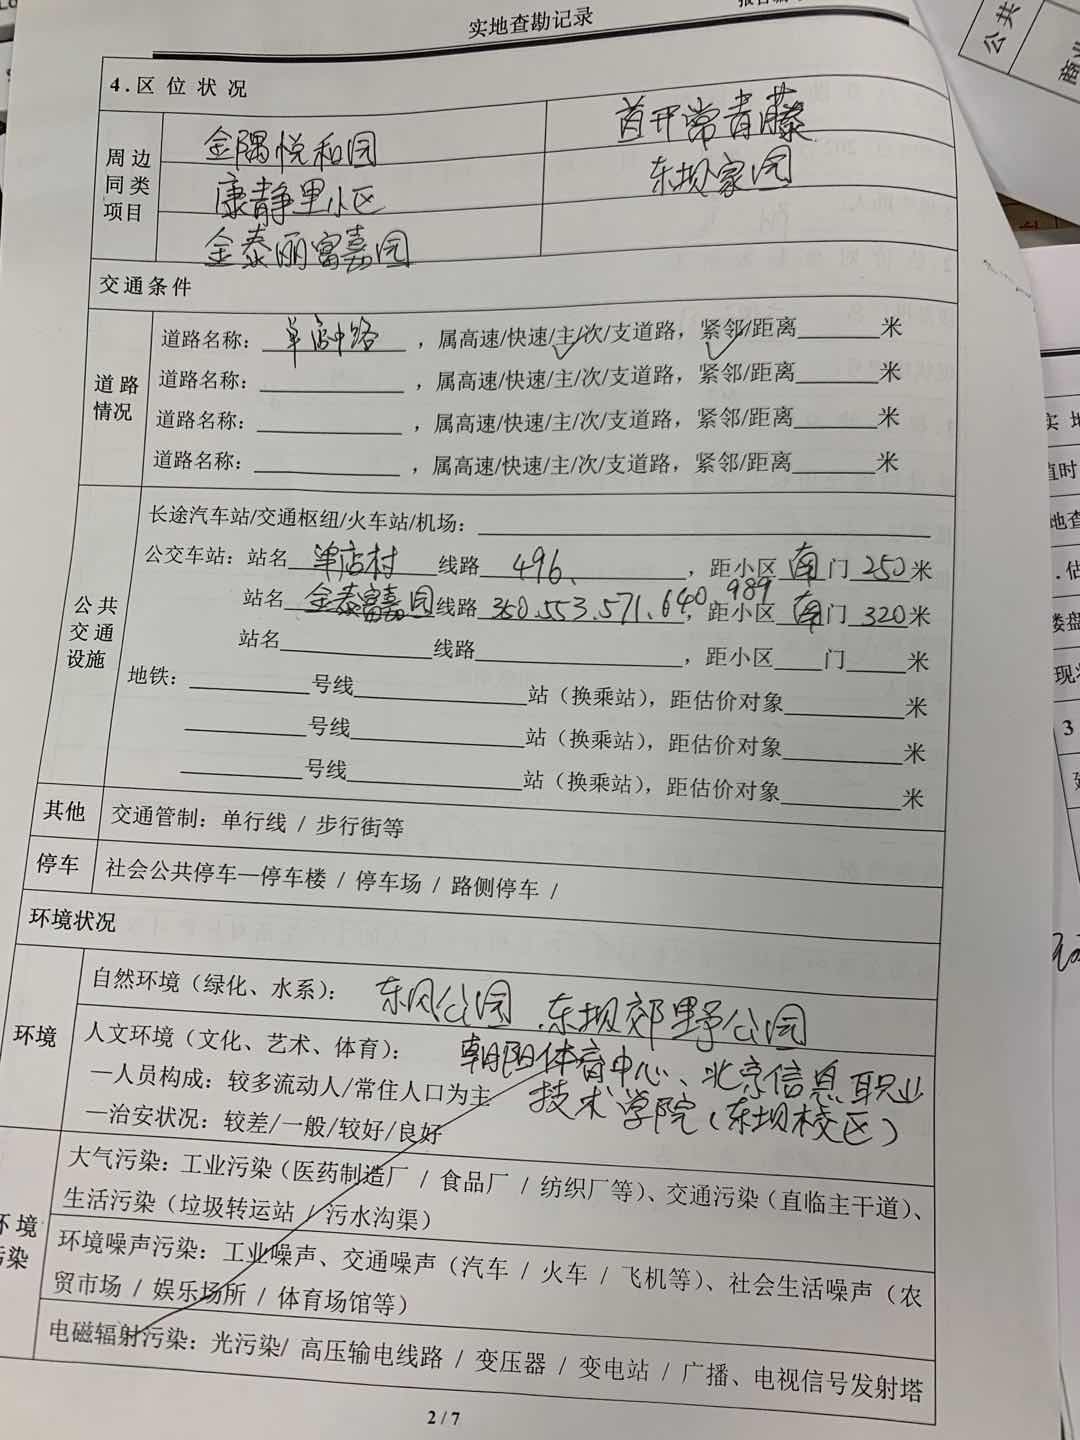 实地查勘记录
4.区 位 状 况
周边同类项目
金隅悦和园
首开常青藤
康静里小区
东坝家园
金泰丽富嘉园
交通条件
道路情况
道路名称：单店中路，属高速/快速/主/次/支道路，紧邻/距离______米
道路名称：______，属高速/快速/主/次/支道路，紧邻/距离______米
道路名称：______，属高速/快速/主/次/支道路，紧邻/距离______米
道路名称：______，属高速/快速/主/次/支道路，紧邻/距离______米
公共交通设施
长途汽车站/交通枢纽/火车站/机场：______
公交车站：站名 单店村 线路 496、，距小区 南 门 250 米
站名 金泰富嘉园 线路 350.553.571.640.989，距小区 南 门 320 米
站名______线路______，距小区____门____米
地铁：______号线______站（换乘站），距估价对象______米
______号线______站（换乘站），距估价对象______米
______号线______站（换乘站），距估价对象______米
其他
交通管制：单行线 / 步行街等
停车
社会公共停车—停车楼 / 停车场 / 路侧停车 /
环境状况
环境
自然环境（绿化、水系）：东风公园、东坝郊野公园
人文环境（文化、艺术、体育）：朝阳体育中心、北京信息职业
技术学院（东坝校区）
—人员构成：较多流动人/常住人口为主
—治安状况：较差/一般/较好/良好
环境
污染
大气污染：工业污染（医药制造厂 / 食品厂 / 纺织厂等）、交通污染（直临主干道）、
生活污染（垃圾转运站 / 污水沟渠）
环境噪声污染：工业噪声、交通噪声（汽车 / 火车 / 飞机等）、社会生活噪声（农
贸市场 / 娱乐场所 / 体育场馆等）
电磁辐射污染：光污染/ 高压输电线路 / 变压器 / 变电站 / 广播、电视信号发射塔
2 / 7
公共